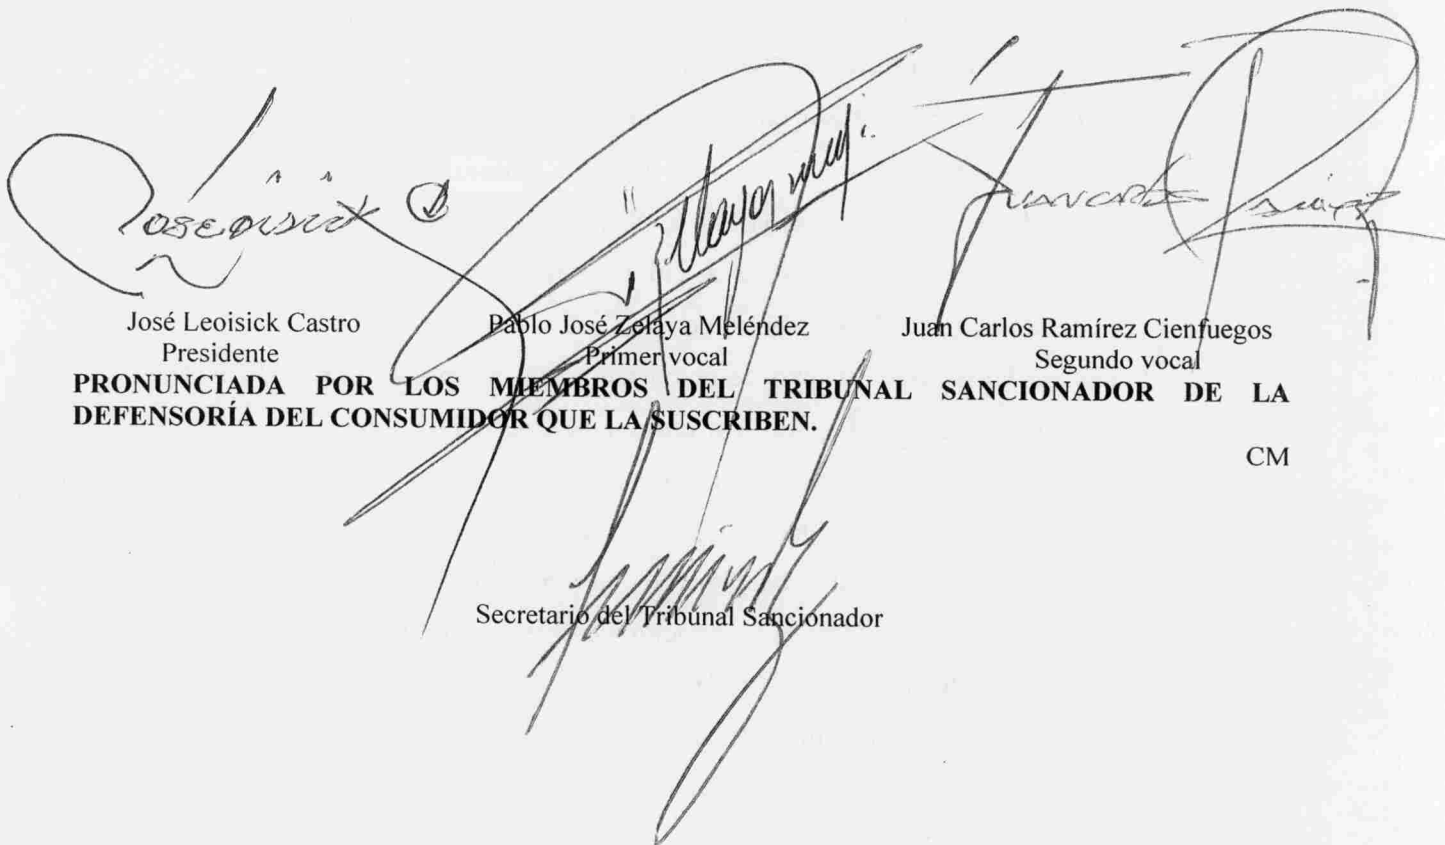 José Leoisick Castro Pablo José Zelaya Meléndez Juan Carlos Ramírez Cienfuegos
Presidente Primer vocal Segundo vocal
PRONUNCIADA POR LOS MIEMBROS DEL TRIBUNAL SANCIONADOR DE LA
DEFENSORÍA DEL CONSUMIDOR QUE LA SUSCRIBEN.
CM
Secretario del Tribunal Sancionador